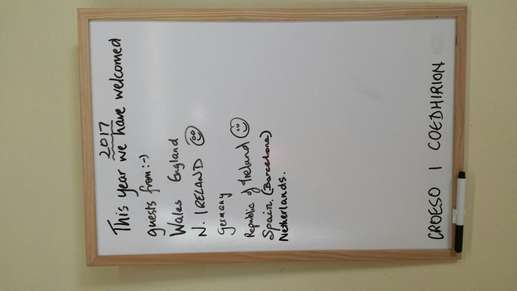 2017
This year we have welcomed
guests from:-)
Wales England
N. IRELAND
Germany
Republic of Ireland
Spain. (Barcelona)
Netherlands.
CROESO I COEDHIRION